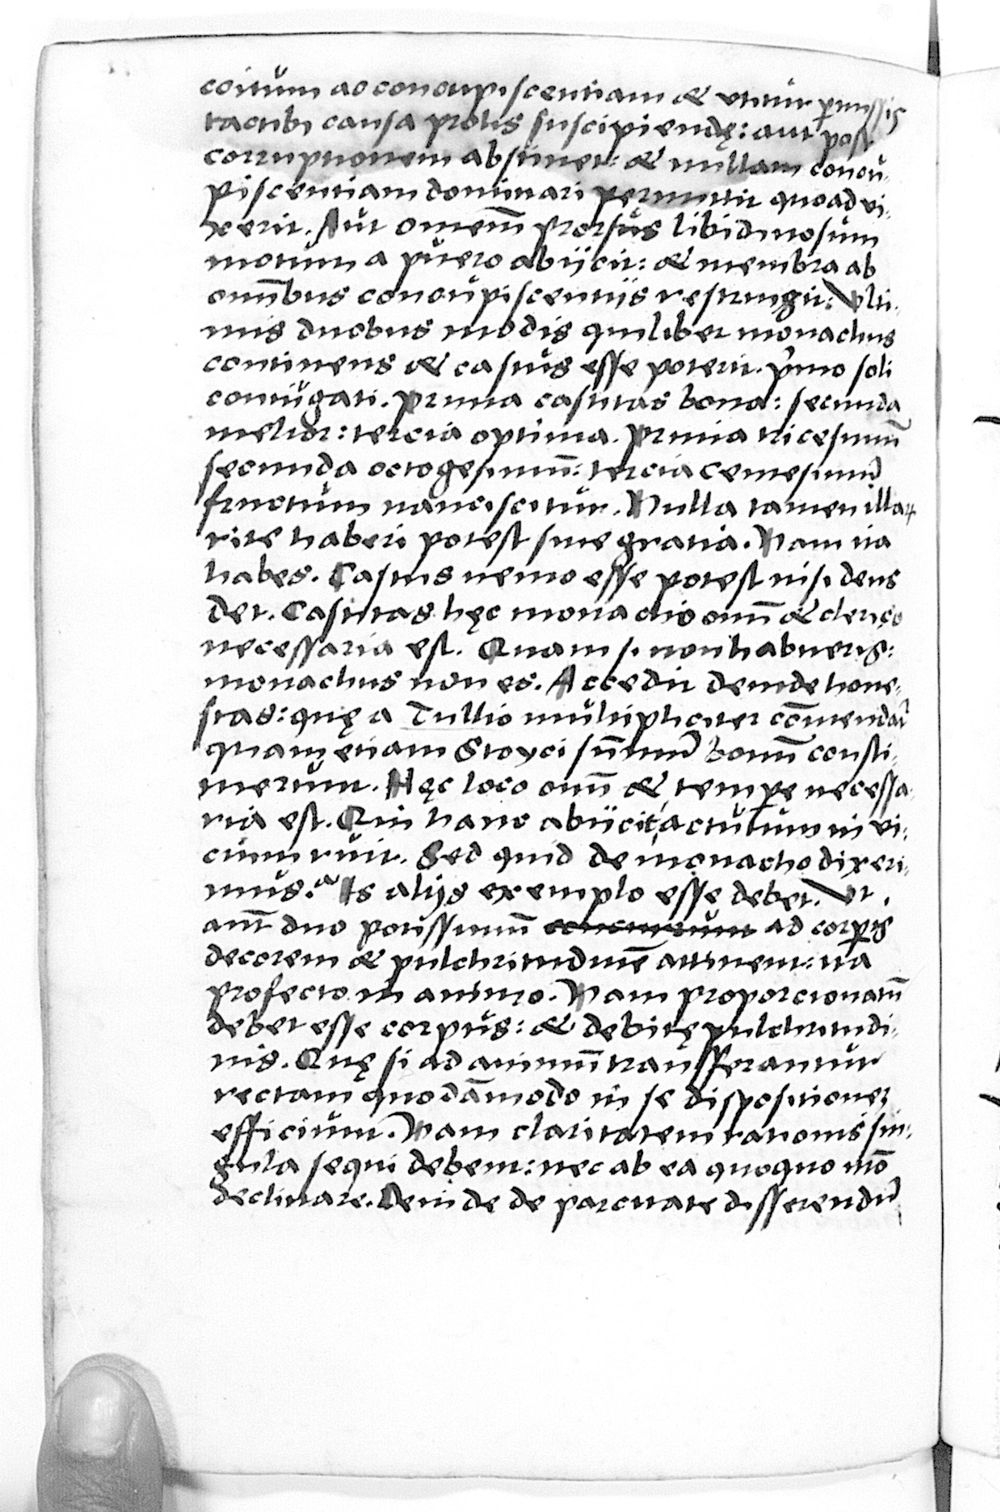 coitum ac concupiscentiam & utitur ꝑmissis
tactibꝯ causa prolis suscipiendę: aut post
corruptionem abstinet: & nullam concu-
piscentiam dominari permittit quoad vi-
xerit. Aut omnem̄ prorsus libidinosum
motum a puero abijcit: & membra ab
omībus concupiscentijs restringit. Ulti-
mis duobus modis quilibet monachus
continens & castus esse poterit. pͥmo soli
coniugati. Prima castitas bona: secunda
melior: tercia optima. Prima tricesimū
secunda octogesimum̄: tercia centesimū
fructum nanciscitur. Nulla tamen illaꝝ
rite haberi potest sine gratia. Nam ita
habes. Castus nemo esse potest nisi deus
det. Castitas hęc monacho omī & clerico
necessaria est. Quam si non habueris:
monachus non es. Accedit deinde hone-
stas: quę a Tullio multipliciter cōmendaṫ
quam etiam Stoyci sum̄mū bonum̄ consti-
tuerunt. Hęc loco omī & temꝑe necessa-
ria est. Qui hanc abijcit actutum in vi-
cium ruit. Sed quid de monacho dixeri-
mus? Is alijs exemplo esse debet. Ut
aut̄ duo potissimum̄ concurrunt ad corꝑis
decorem & pulchritudinē attinent: ita
profecto in animo. Nam proporcionatū
debet esse corpus: & debitę pulchritudi-
nis. Quę si ad animum̄ transfferantur
rectam quodāmodo in se dispositionem
efficiunt. Nam claritatem rationis sin-
gula sequi debent: nec ab ea quoquo mō
declinare. Deinde de parcitate disserendū